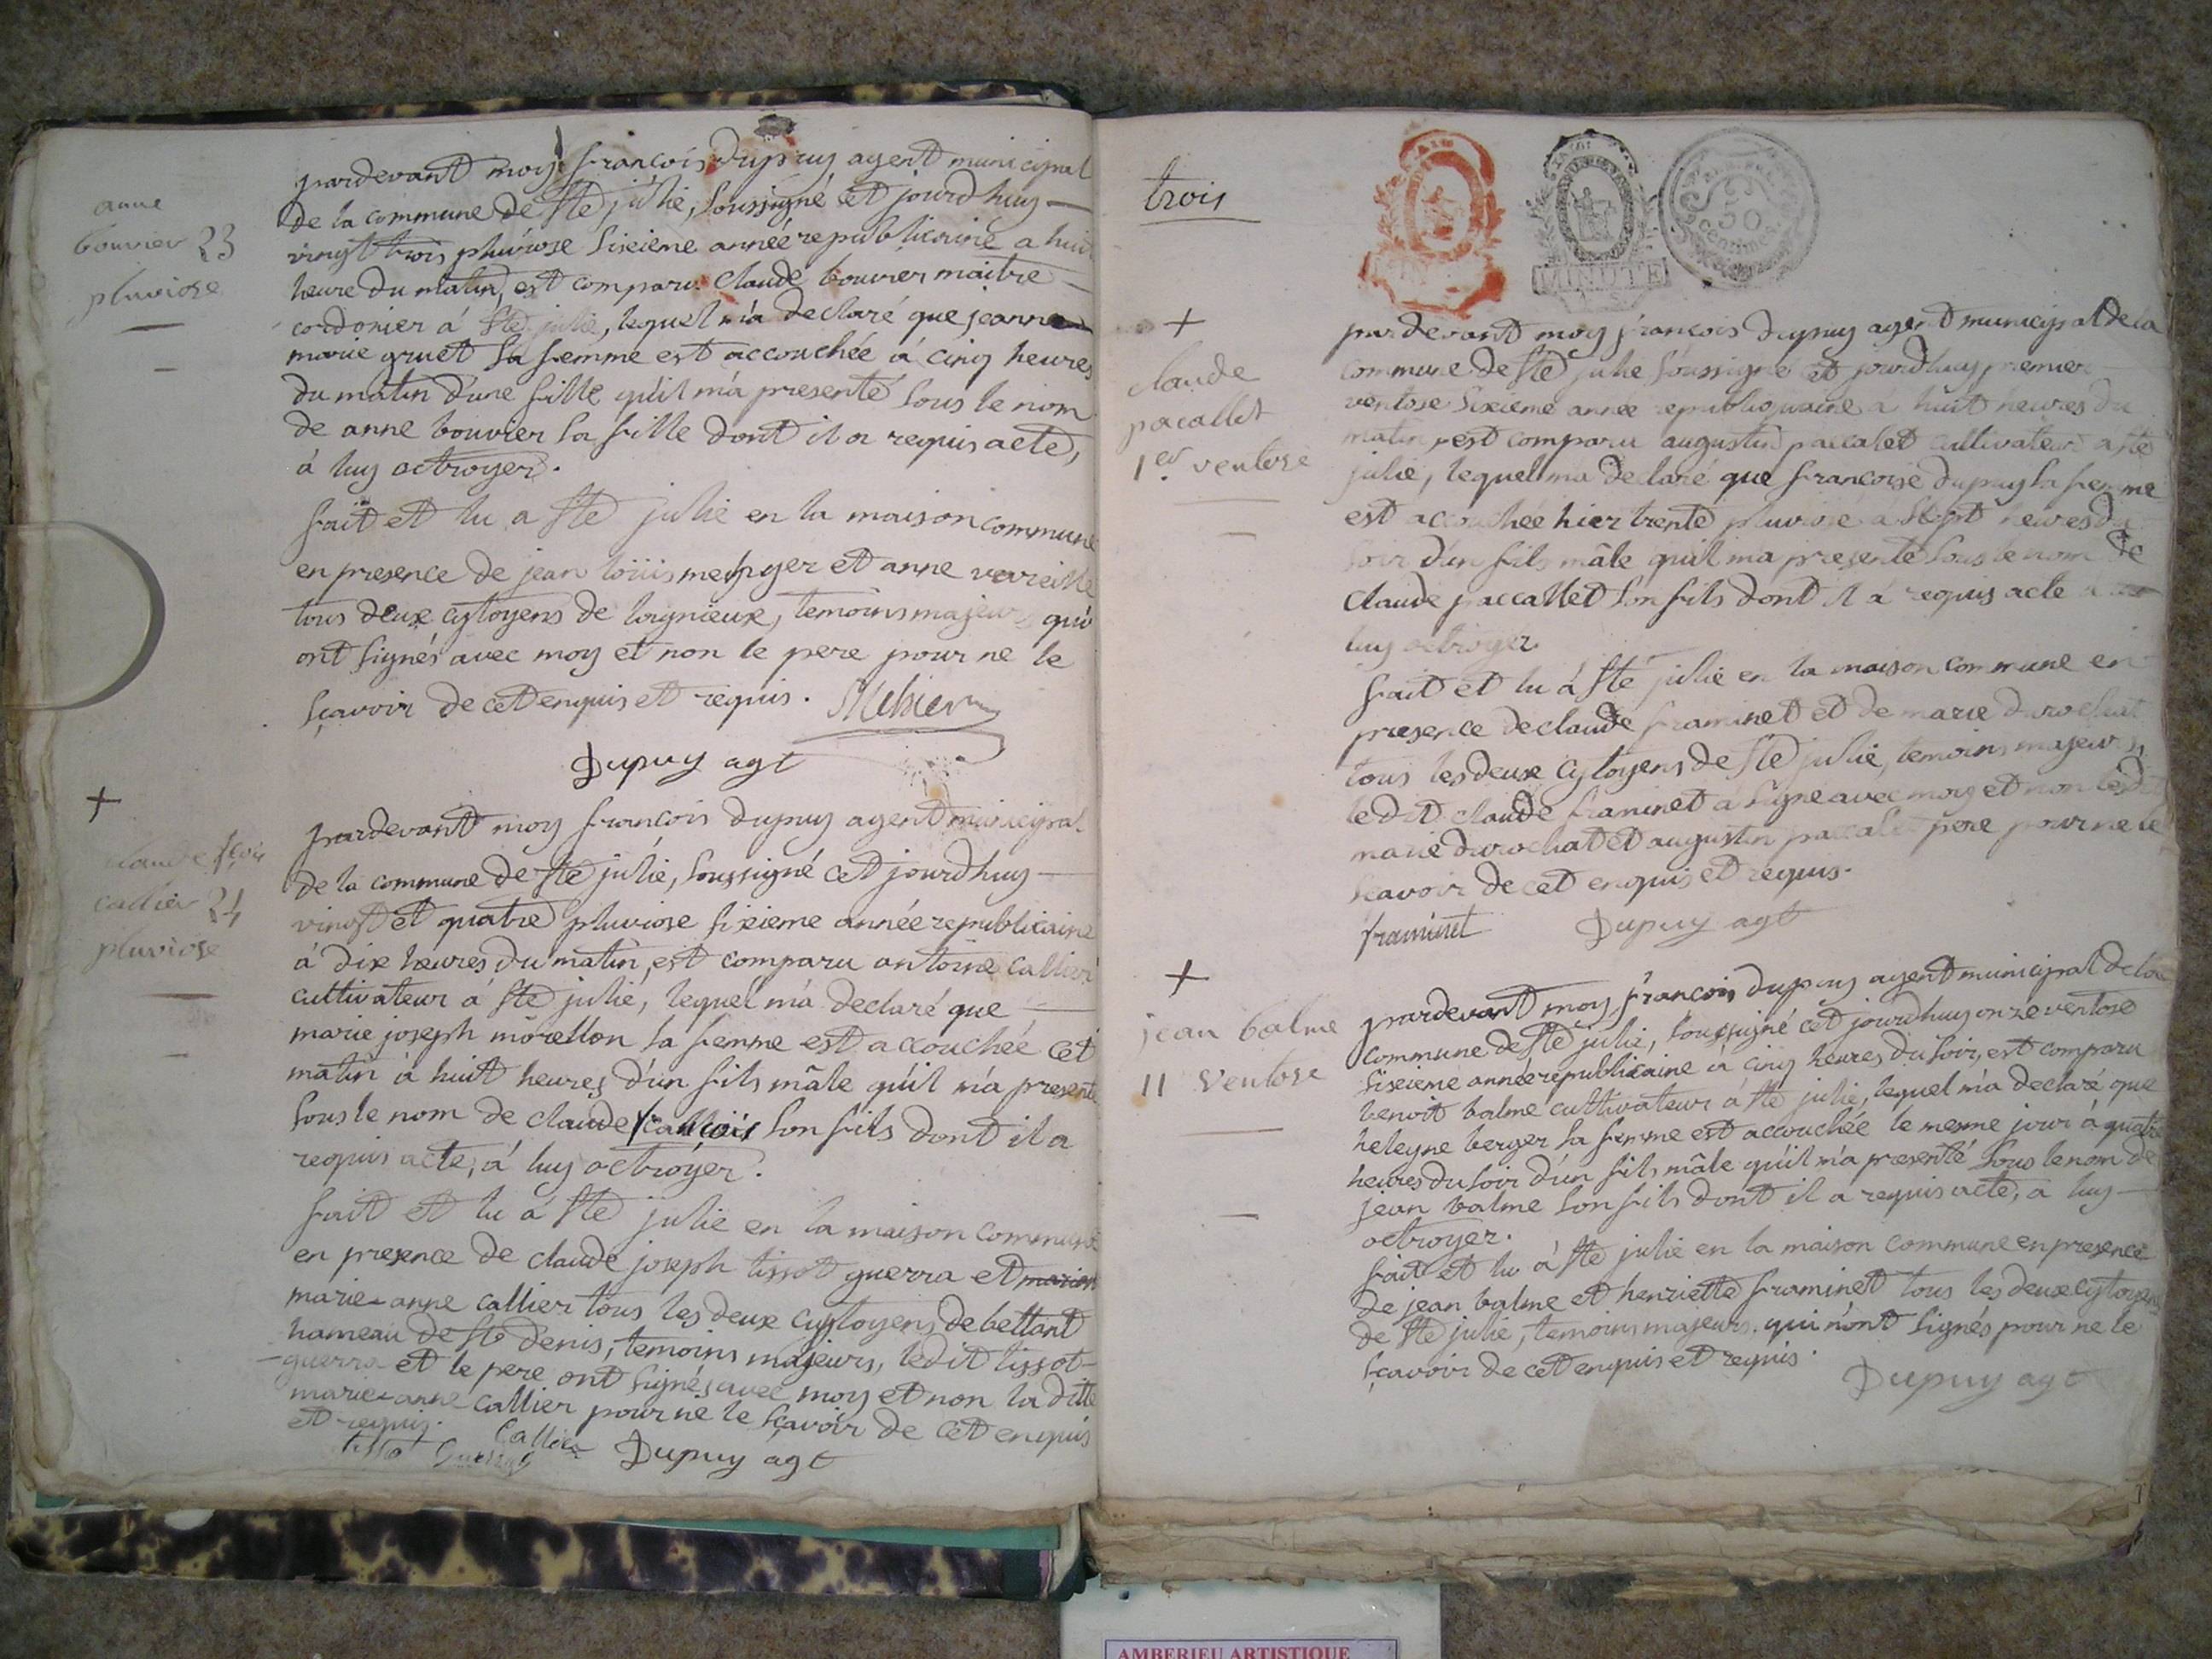 anne
bouvier 23
pluviose
pardevant moy françois dupuy agent municipal
de la commune de ste julie, soussigné cet jourdhuy
vingt trois pluviose sixieme année republicaine a huit
heure du matin, est comparu claude bouvier maitre
cordonier á ste julie, lequel m'a declaré que jeanne
marie gruet sa femme est accouchée á cinq heures
du matin d'une fille qu'il m'a presenté sous le nom
de anne bouvier sa fille dont il a requis acte,
á luy octroyer.
fait et lu a ste julie en la maison commune
en presence de jean loüis et anne
tous deux cytoyens de loignieux, temoins majeurs qui
ont signés avec moy et non le pere pour ne le
sçavoir de cet enquis et requis.
Dupuy agt
+
claude
callier 24
pluviose
pardevant moy francois dupuy agent municipal
de la commune de ste julie, soussigné cet jourdhuy
vingt et quatre pluviose sixieme année republicaine
á dix heures du matin, est comparu antoine callier
cultivateur á ste julie, lequel m'a declaré que
marie joseph morellon sa femme est accouchée cet
matin á huit heures d'un fils mâle qu'il m'a presenté
sous le nom de claude son fils dont il a
requis acte, á luy octroyer.
fait et lu á ste julie en la maison commune
en presence de claude joseph tissot guerra et
marie-anne callier tous les deux cytoyens de bettant
hameau de st denis, temoins majeurs, ledit tissot
guerra et le pere ont signés avec moy et non la ditte
marie-anne callier pour ne le sçavoir de cet enquis
et requis. Callier
tissot Guerra Dupuy agt
trois
MINUTE
50
centimes
+
claude
pacallet
1er ventose
pardevant moy francois dupuy agent municipal de la
commune de ste julie soussigné cet jourdhuy premier
ventose sixieme année republiquaine á huit heures du
matin, est comparu augustin paccalet cultivateur a ste
julie, lequel ma declaré que francoise dupuy sa femme
est accouchée hier trente pluviose a sept heures du
soir d'un fils mâle quil ma presenté sous le nom de
claude paccallet son fils dont il a requis acte a
luy octroyer.
fait et lu á ste julie en la maison commune en
presence de claude framinet et de marie durochat
tous les deux cytoyens de ste julie, temoins majeurs,
ledit claude framinet a signe avec moy et non ledit
marie durochat et augustin paccalet pere pour ne le
scavoir de cet enquis et requis.
framinet Dupuy agt
+
jean balme
11 ventose
pardevant moy, francois dupuy agent municipal de la
commune de ste julie, soussigné cet jourdhuy onze ventose
sixieme année republicaine á cinq heures du soir, est comparu
benoit balme cultivateur á ste julie, lequel m'a declaré que
heleyne berger sa femme est accouchée le meme jour á quatre
heures du soir d'un fils mâle qu'il m'a presenté sous le nom de
jean balme son fils dont il a requis acte, a luy
octroyer.
fait et lu á ste julie en la maison commune en presence
de jean balme et henriette framinet tous les deux cytoyens
de ste julie, temoins majeurs. qui n'ont signés pour ne le
sçavoir de cet enquis et requis.
Dupuy agt
AMBERIEU ARTISTIQUE